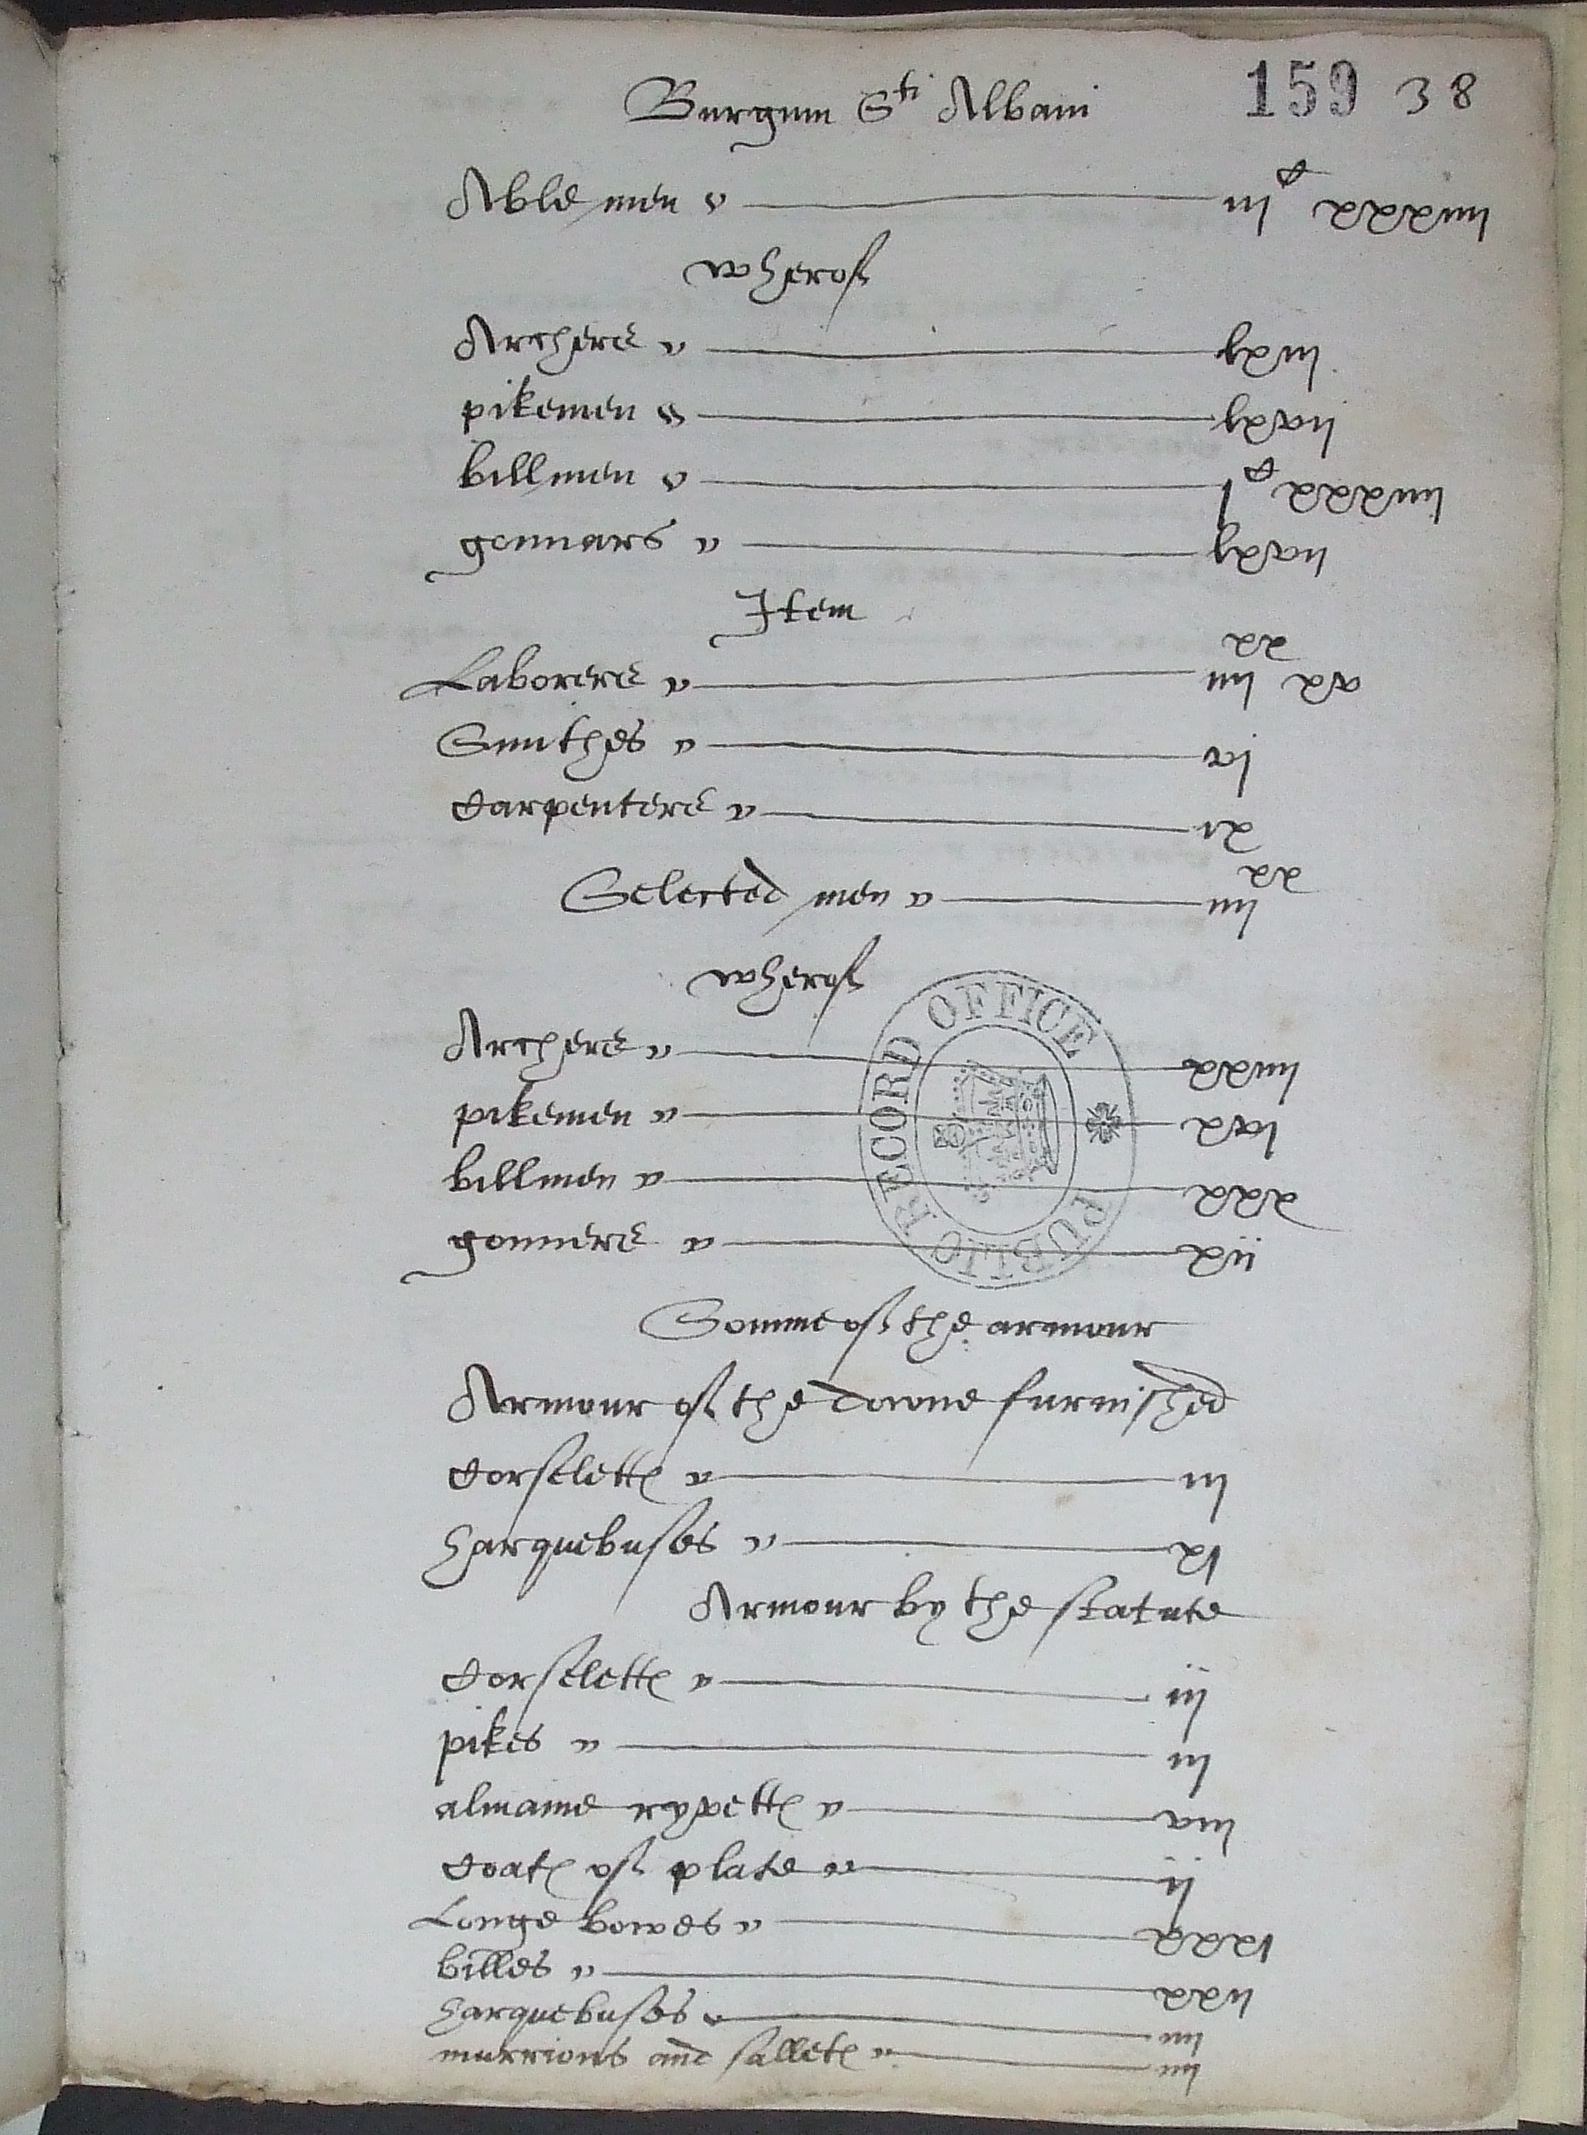 Burgum Sti Albani 159 38
Able men iij c xxxiiij
wherof
Archers lxiij
pikemen lxvij
billmen j c xxxiiij
gonnars lxvij
Item
Laborers iiij xx xv
Smithes vj
Carpenters ix
Selected men iiij xx
wherof
Archers xxiiij
pikemen xvj
billmen xxx
gonners xij
PUBLIC RECORD OFFICE
Somme of the armour
Armour of the Towne furnished
Corseletts iij
harquebuses xj
Armour by the statute
Corseletts iij
pikes iij
almaine ryvetts viij
Coats of plate ij
Longe bowes xxxj
billes xxij
harquebuses iiij
murrions and sallets iiij